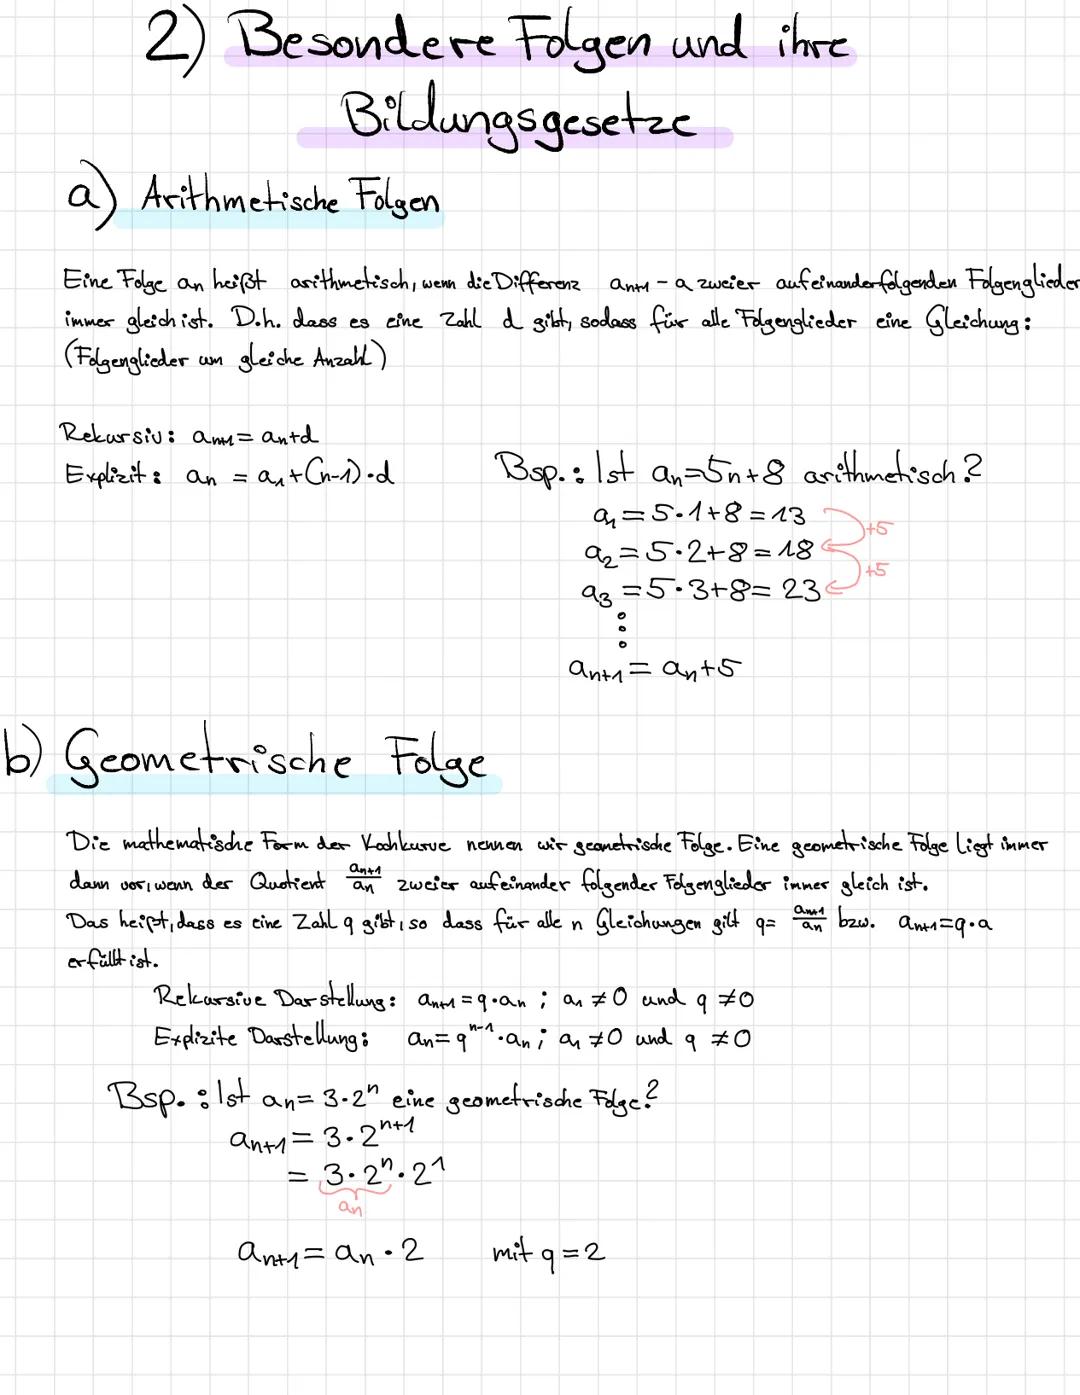 2) Besondere Folgen und ihre
Bildungsgesetze
a) Arithmetische Folgen
Eine Folge an heißt arithmetisch, wenn die Differenz an+1 - a zweier aufeinanderfolgenden Folgenglieder
immer gleich ist. D.h. dass es eine Zahl d gibt, sodass für alle Folgenglieder eine Gleichung:
(Folgenglieder um gleiche Anzahl)
Rekursiv: an+1 = an+d
Explizit: an = a1+(n-1)·d
Bsp.: Ist an=5n+8 arithmetisch?
a1 = 5·1+8 = 13
+5
a2 = 5·2+8 = 18
+5
a3 = 5·3+8 = 23
⋮
an+1 = an+5
b) Geometrische Folge
Die mathematische Form der Kochkurve nennen wir geometrische Folge. Eine geometrische Folge liegt immer
dann vor, wenn der Quotient an+1/an zweier aufeinander folgender Folgenglieder immer gleich ist.
Das heißt, dass es eine Zahl q gibt, so dass für alle n Gleichungen gilt q= an+1/an bzw. an+1=q·a
erfüllt ist.
Rekursive Darstellung: an+1 = q·an ; a1 ≠0 und q ≠0
Explizite Darstellung: an= qⁿ⁻¹·an ; a1 ≠0 und q ≠0
Bsp.: Ist an= 3·2ⁿ eine geometrische Folge?
an+1 = 3·2ⁿ⁺¹
= 3·2ⁿ·2¹
an
an+1 = an · 2 mit q = 2